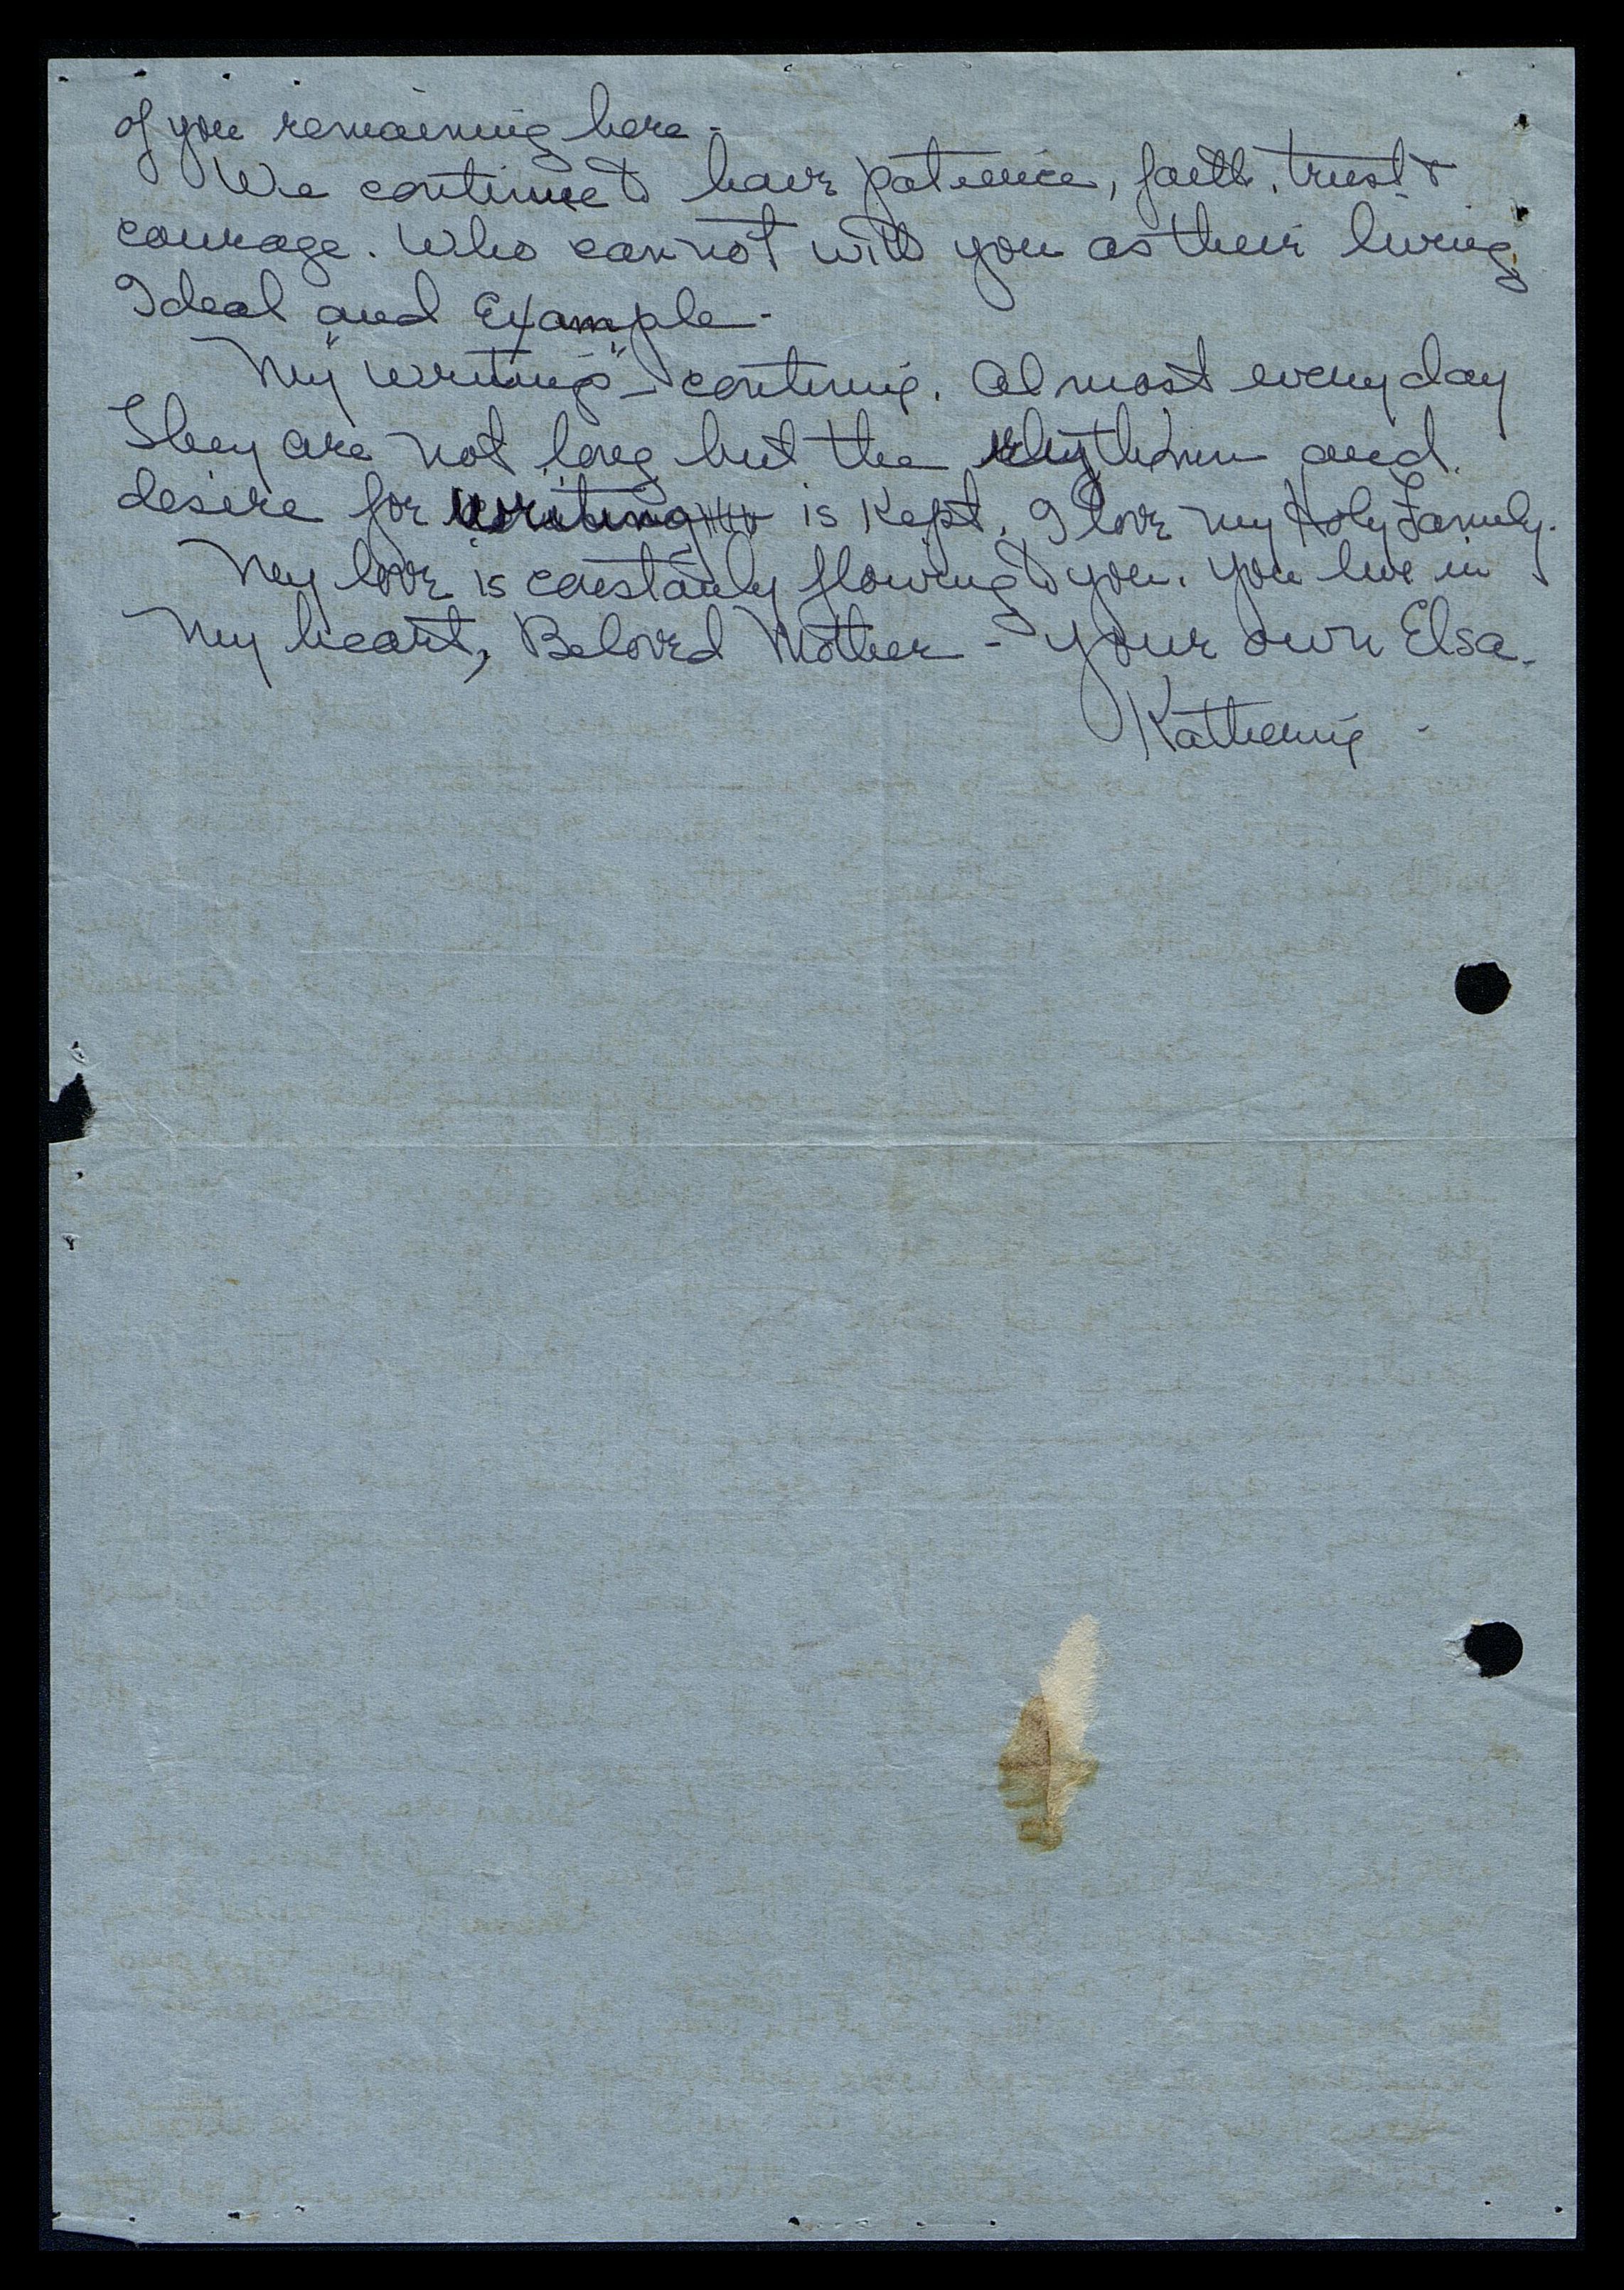 of you remaining here -
We continue to have patience, faith, trust &
courage. Who cannot with you as their living
Ideal and Example -
My "writings" continue. Almost everyday
They are not long but the rhythm and
desire for writing is kept. I love my Holy Family.
My love is constantly flowing to you. You live in
my heart, Beloved Mother - Your own Elsa.
Katherine -